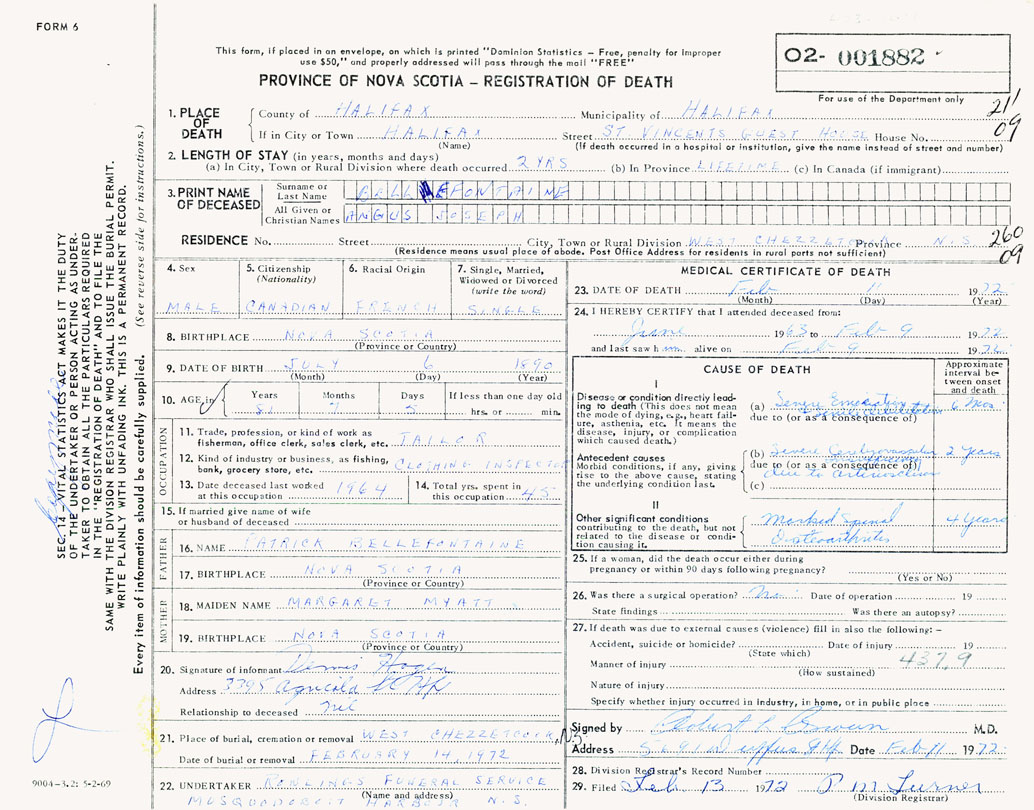 FORM 6
This form, if placed in an envelope, on which is printed "Dominion Statistics – Free, penalty for improper
use $50," and properly addressed will pass through the mail "FREE"
PROVINCE OF NOVA SCOTIA – REGISTRATION OF DEATH
02- 001882
For use of the Department only
211
09
1. PLACE OF DEATH
County of HALIFAX Municipality of HALIFAX
If in City or Town HALIFAX Street ST VINCENTS GUEST HOUSE House No.
(Name) (If death occurred in a hospital or institution, give the name instead of street and number)
2. LENGTH OF STAY (in years, months and days)
(a) In City, Town or Rural Division where death occurred 2 YRS (b) In Province LIFETIME (c) In Canada (if immigrant)
3. PRINT NAME OF DECEASED
Surname or Last Name BELLEFONTAINE
All Given or Christian Names ANGUS JOSEPH
RESIDENCE No. Street City, Town or Rural Division WEST CHEZZETCO Province N.S.
(Residence means usual place of abode. Post Office Address for residents in rural parts not sufficient)
260
09
4. Sex
MALE
5. Citizenship (Nationality)
CANADIAN
6. Racial Origin
FRENCH
7. Single, Married, Widowed or Divorced (write the word)
SINGLE
8. BIRTHPLACE NOVA SCOTIA
(Province or Country)
9. DATE OF BIRTH JULY 6 1890
(Month) (Day) (Year)
10. AGE in Years Months Days If less than one day old
81 7 5 hrs. or min.
OCCUPATION
11. Trade, profession, or kind of work as
fisherman, office clerk, sales clerk, etc. TAILOR
12. Kind of industry or business, as fishing,
bank, grocery store, etc. CLOTHING INSPECTOR
13. Date deceased last worked
at this occupation 1964
14. Total yrs. spent in
this occupation 45
15. If married give name of wife
or husband of deceased
FATHER
16. NAME PATRICK BELLEFONTAINE
17. BIRTHPLACE NOVA SCOTIA
(Province or Country)
MOTHER
18. MAIDEN NAME MARGARET MYATT
19. BIRTHPLACE NOVA SCOTIA
(Province or Country)
20. Signature of informant Dennis Hogan
Address 3795 Agricola St Hfx
Relationship to deceased nil
21. Place of burial, cremation or removal WEST CHEZZETCOOK, N.S.
Date of burial or removal FEBRUARY 14, 1972
22. UNDERTAKER ROWLINGS FUNERAL SERVICE
(Name and address)
MUSQUODOBOIT HARBOUR N.S.
MEDICAL CERTIFICATE OF DEATH
23. DATE OF DEATH Feb 11 1972
(Month) (Day) (Year)
24. I HEREBY CERTIFY that I attended deceased from:
June 1963 to Feb 9 1972
and last saw him alive on Feb 9 1972
CAUSE OF DEATH
Approximate interval between onset and death
I
Disease or condition directly leading to death (This does not mean the mode of dying, e.g., heart failure, asthenia, etc. It means the disease, injury, or complication which caused death.)
(a) Severe Emaciation 6 Mos
due to (or as a consequence of)
Antecedent causes
Morbid conditions, if any, giving rise to the above cause, stating the underlying condition last.
(b) Severe 2 Years
due to (or as a consequence of)
due to
(c)
II
Other significant conditions
contributing to the death, but not related to the disease or condition causing it.
Marked Spinal 4 Years
Osteoarthritis
25. If a woman, did the death occur either during
pregnancy or within 90 days following pregnancy?
(Yes or No)
26. Was there a surgical operation? No Date of operation 19
State findings Was there an autopsy?
27. If death was due to external causes (violence) fill in also the following: –
Accident, suicide or homicide? Date of injury 19
(State which)
437.9
Manner of injury
(How sustained)
Nature of injury
Specify whether injury occurred in industry, in home, or in public place
Signed by M.D.
Address Hfx Date Feb 11 1972
28. Division Registrar's Record Number
29. Filed Feb 13 1972 P M Turner
(Division Registrar)
SEC. 14 – VITAL STATISTICS ACT MAKES IT THE DUTY
OF THE UNDERTAKER OR PERSON ACTING AS UNDER-
TAKER TO OBTAIN ALL THE PARTICULARS REQUIRED
IN THE "REGISTRATION OF DEATH" AND TO FILE THE
SAME WITH THE DIVISION REGISTRAR WHO SHALL ISSUE THE BURIAL PERMIT.
WRITE PLAINLY WITH UNFADING INK. THIS IS A PERMANENT RECORD.
Every item of information should be carefully supplied. (See reverse side for instructions.)
9004-3.2: 5-2-69